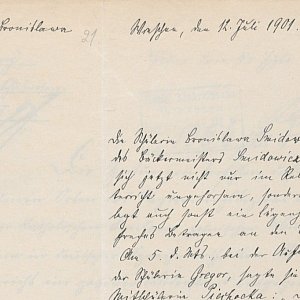 Bronislawa
21
Wreschen, den 12. Juli 1901.
Die Schülerin Bronislawa Smidowicz
des Bäckermeisters Smidowicz
sich jetzt nicht nur im Reli
terricht ungehorsam, sondern
legt auch sonst ein lügen
freches Betragen an den
Am 5. d. Mts., bei der Auf
der Schülerin Gregor, sagte sie
Mitschülerin